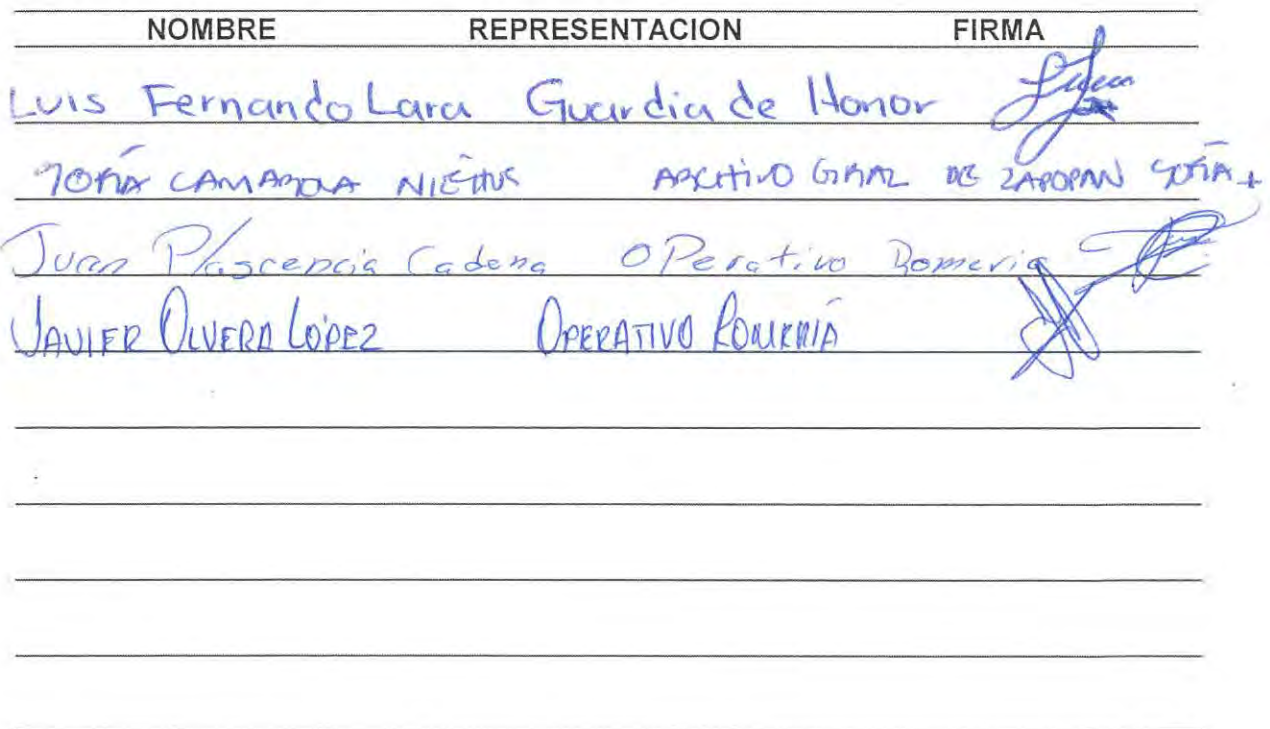 NOMBRE REPRESENTACION FIRMA
Luis Fernando Lara Guardia de Honor
ARCHIVO GRAL DE ZAPOPAN SOFÍA
Juan Plascencia Cadena OPerativo Romeria
JAVIER OLVERA LÓPEZ OPERATIVO ROMERÍA